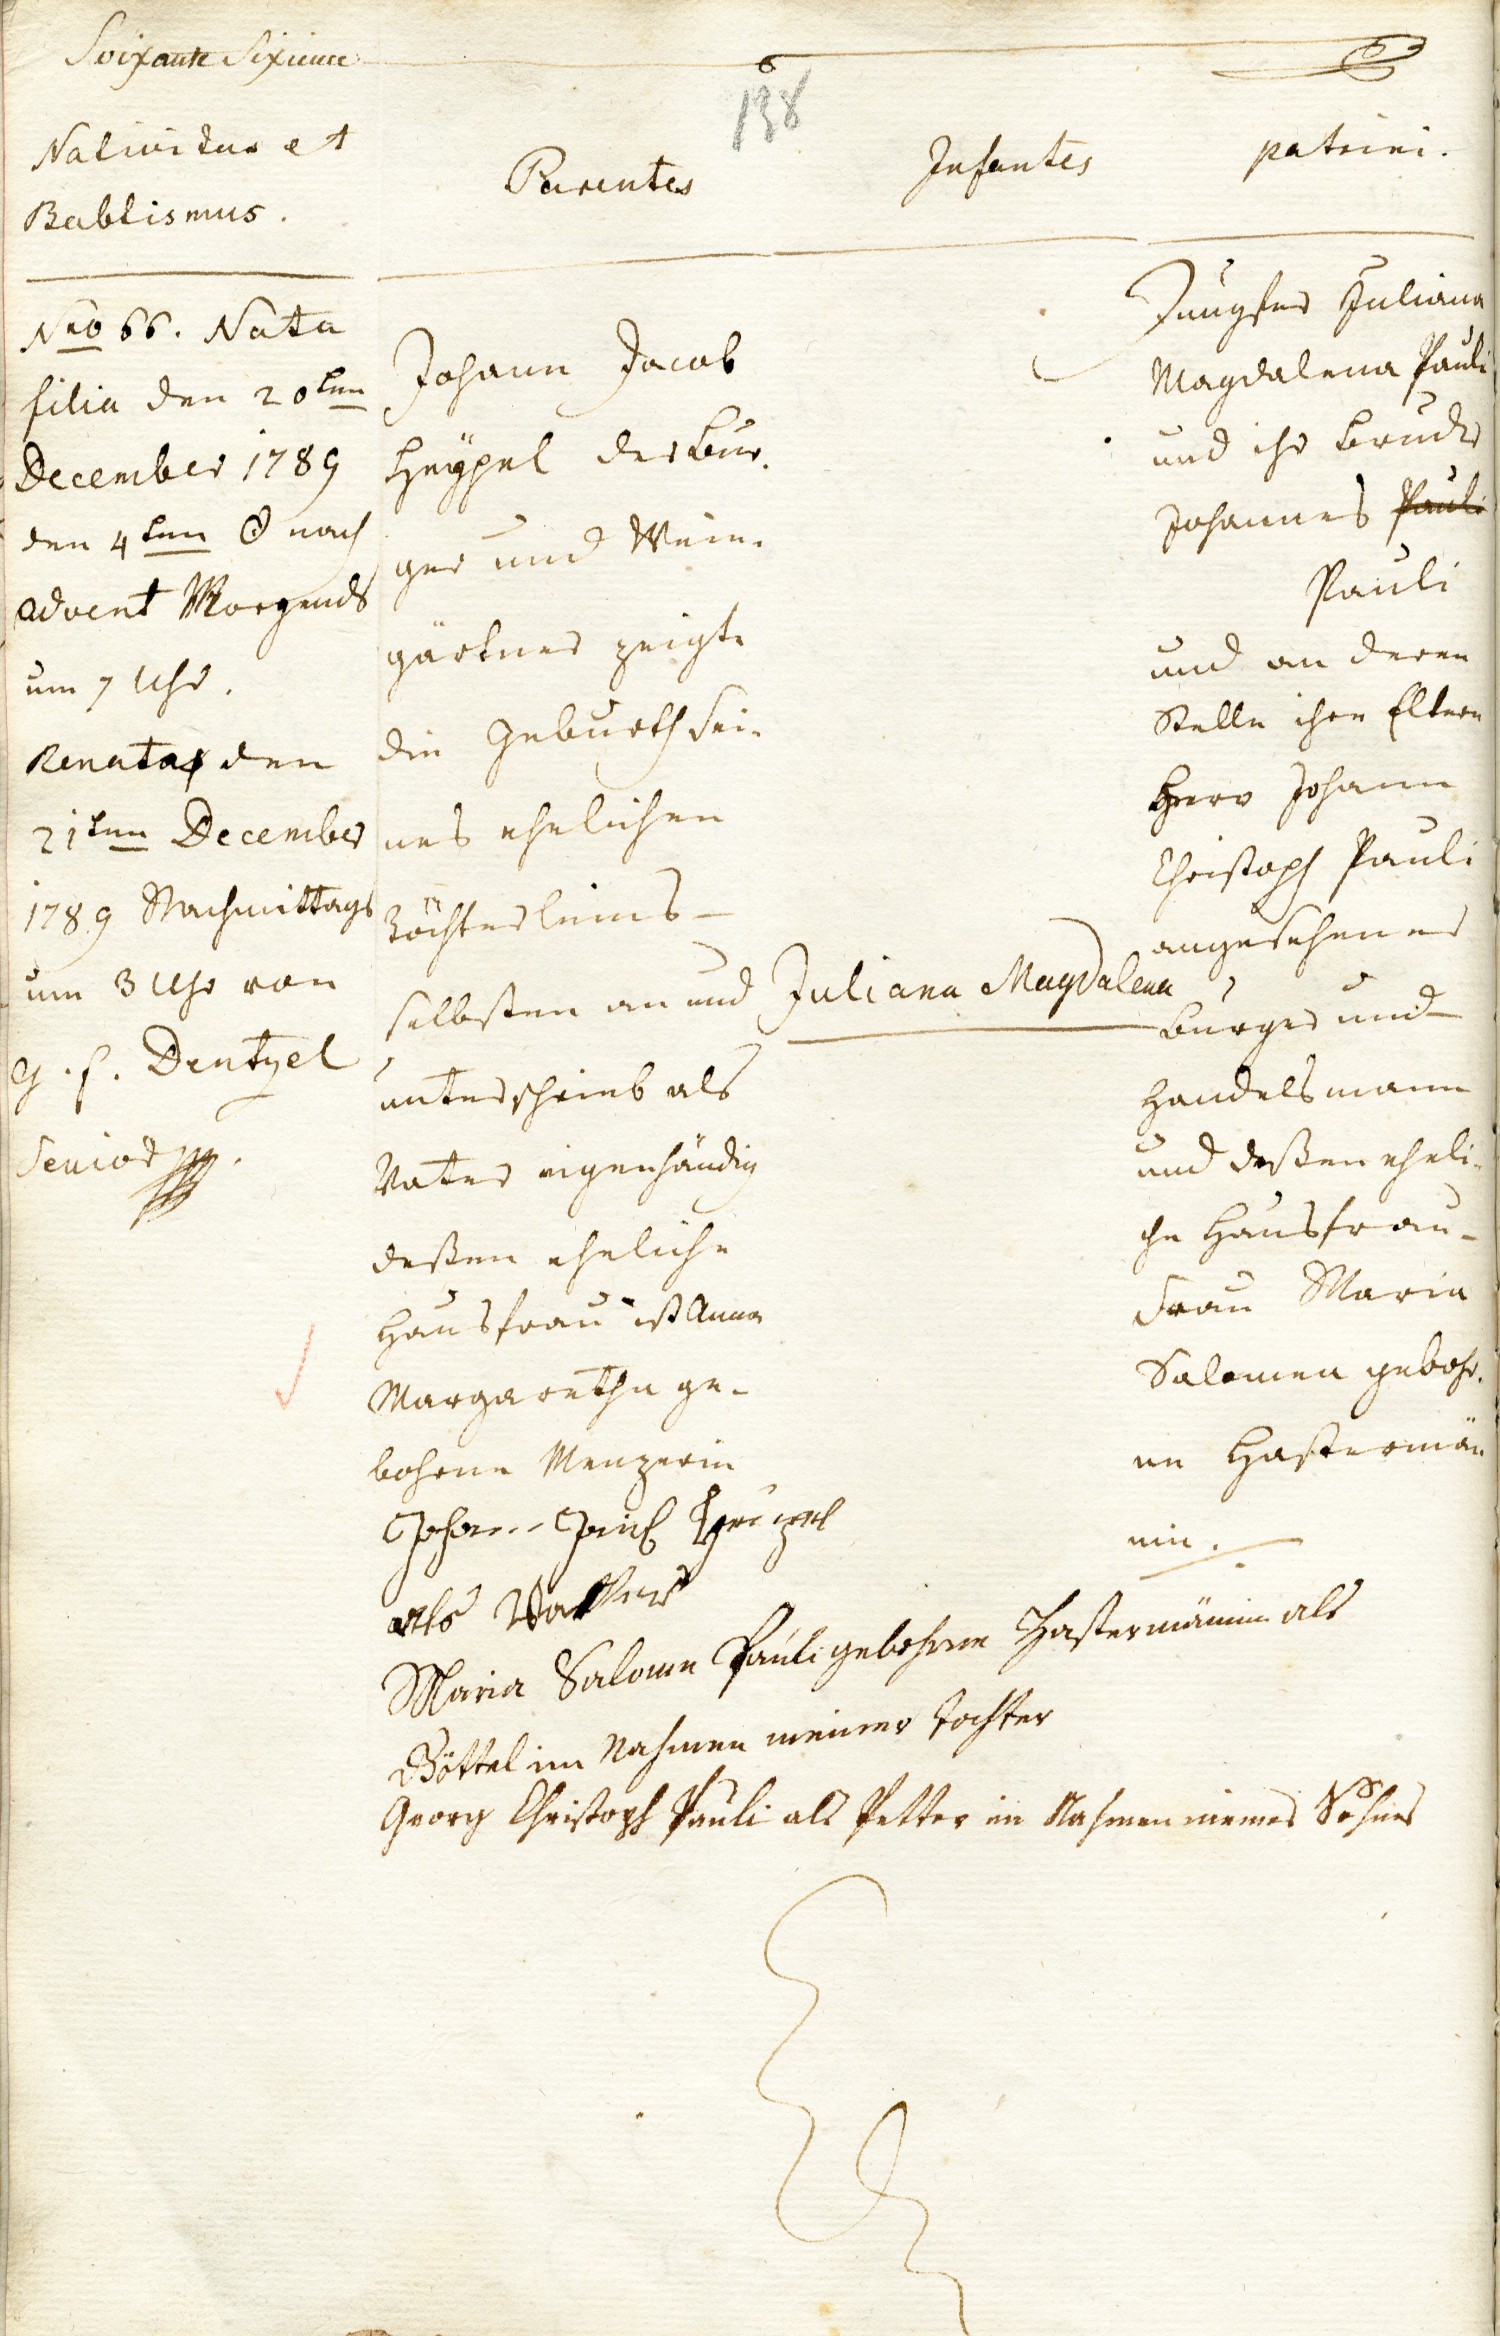 Soixante Sixieme
138
Nativitas et
Babtismus.
Parentes
Infantes
patrini.
Nro 66. Nata
filia den 20ten
December 1789
den 4ten ☉ nach
advent Morgends
um 7 Uhr.
Renata den
21ten December
1789 Nachmittags
um 3 Uhr von
G. F. Dentzel
Senior
Johann Jacob
Heÿpel der Bur-
ger und Wein-
gärtner zeigte
die Geburth sei-
nes ehelichen
Töchterleins
selbsten an und
unterschrieb als
Vater eigenhändig
deßen eheliche
Hausfrau ist Anna
Margaretha ge-
bohrne Menzerin
Juliana Magdalena
Jungfer Juliana
Magdalena Pauli
und ihr Bruder
Johannes Pauli
Pauli
und an deren
Stelle ihre Eltern
Herr Johann
Christoph Pauli
angesehener
Burger und
Handelsmann
und deßen eheli-
che Hausfrau
Frau Maria
Salomea gebohr-
ne Hastermän
nin.
Johann Jacob Heupel
als Vatter
Maria Salome Pauli gebohrne Hastermännin als
Göttel im Nahmen meiner Tochter
Georg Christoph Pauli als Petter im Nahmen meines Sohnes